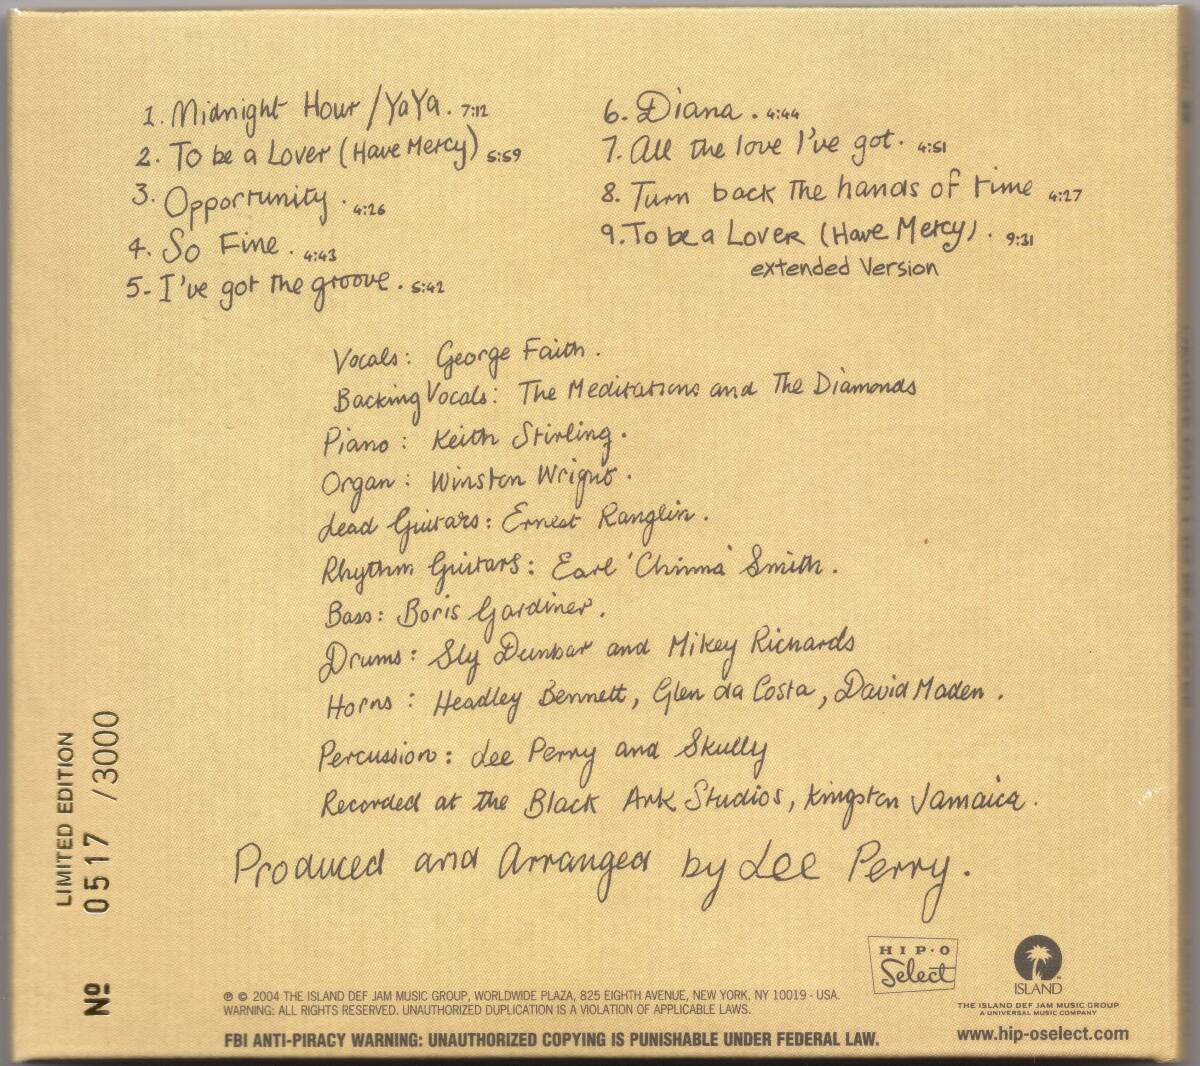 1. Midnight Hour / YaYa. 7:12
2. To be a Lover (Have Mercy) 5:59
3. Opportunity. 4:26
4. So Fine. 4:43
5- I've got the groove. 5:42
6. Diana. 4:44
7. All the love I've got. 4:51
8. Turn back The hands of time 4:27
9. To be a Lover (Have Mercy). 9:31
extended Version
Vocals: George Faith.
Backing Vocals: The Meditations and The Diamonds
Piano: Keith Stirling.
Organ: Winston Wright.
Lead Guitars: Ernest Ranglin.
Rhythm Guitars: Earl 'Chinna' Smith.
Bass: Boris Gardiner.
Drums: Sly Dunbar and Mikey Richards
Horns: Headley Bennett, Glen da Costa, David Maden.
Percussion: Lee Perry and Skully
Recorded at the Black Ark Studios, Kingston Jamaica.
Produced and Arranged by Lee Perry.
LIMITED EDITION
Nº 0517 /3000
HIP-O
Select
ISLAND
THE ISLAND DEF JAM MUSIC GROUP
A UNIVERSAL MUSIC COMPANY
www.hip-oselect.com
℗ © 2004 THE ISLAND DEF JAM MUSIC GROUP, WORLDWIDE PLAZA, 825 EIGHTH AVENUE, NEW YORK, NY 10019 - USA.
WARNING: ALL RIGHTS RESERVED. UNAUTHORIZED DUPLICATION IS A VIOLATION OF APPLICABLE LAWS.
FBI ANTI-PIRACY WARNING: UNAUTHORIZED COPYING IS PUNISHABLE UNDER FEDERAL LAW.